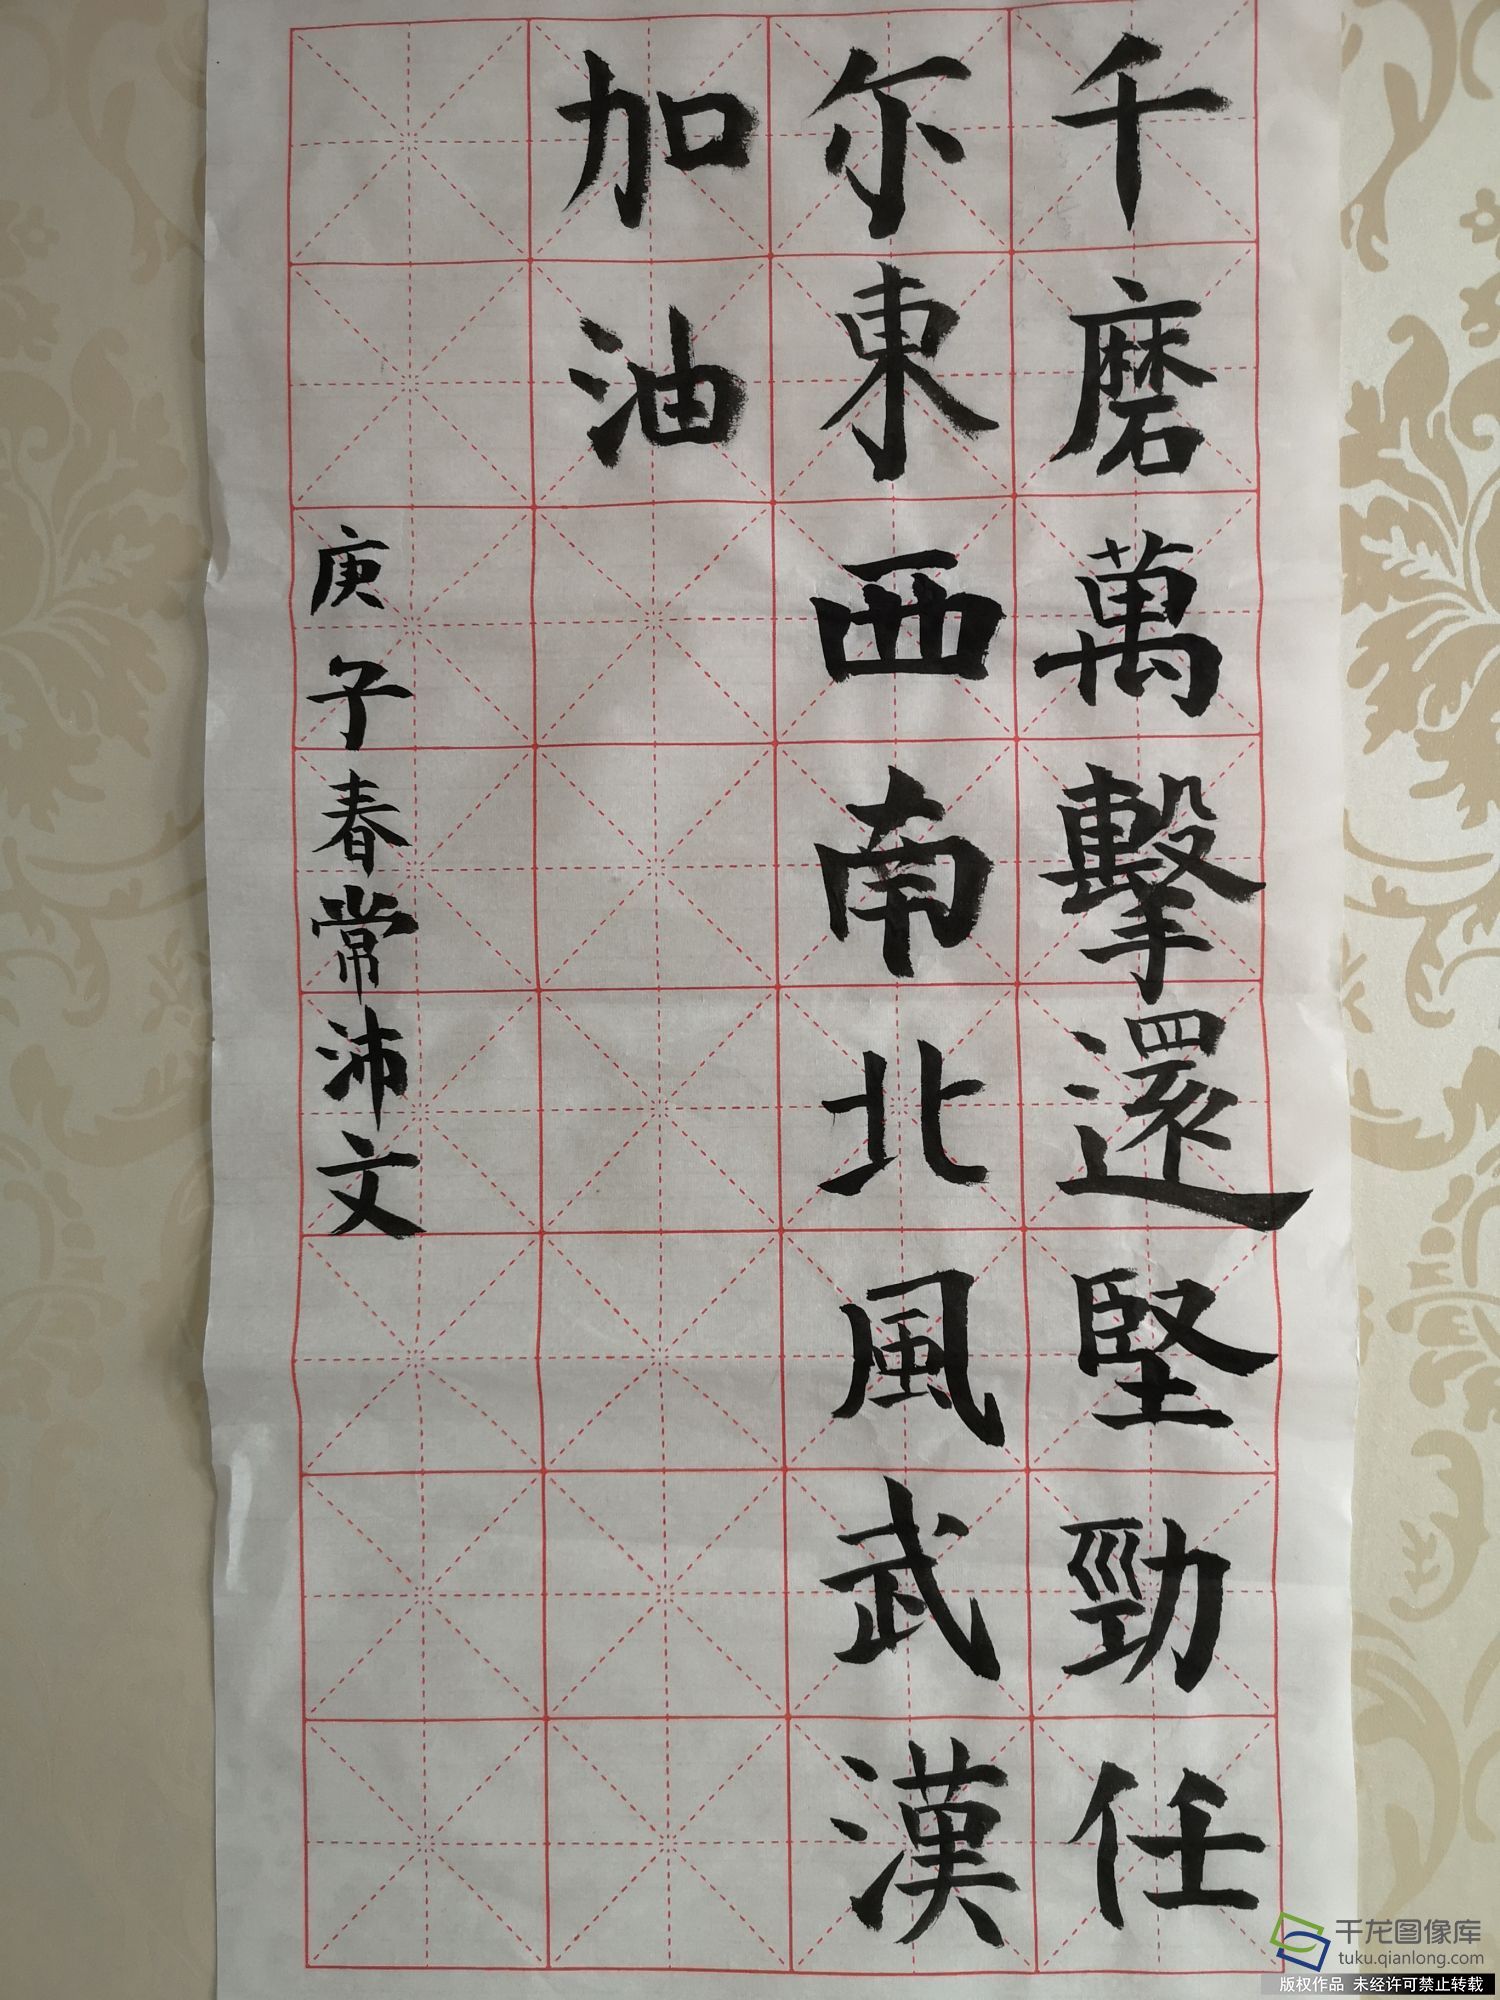 千磨萬擊還堅勁任
尔東西南北風武漢
加油
庚子春常沛文
千龙图像库
tuku.qianlong.com
版权作品 未经许可禁止转载